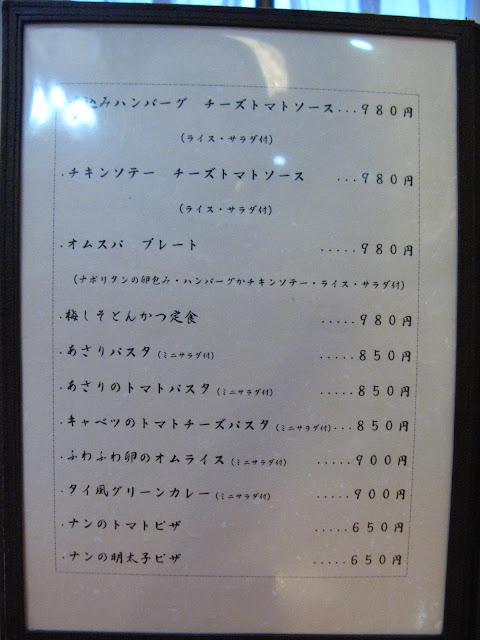 込みハンバーグ　チーズトマトソース...９８０円
(ライス・サラダ付)
.チキンソテー　チーズトマトソース　...９８０円
(ライス・サラダ付)
.オムスパ　プレート　.....９８０円
(ナポリタンの卵包み・ハンバーグかチキンソテー・ライス・サラダ付)
.梅しそとんかつ定食　.....９８０円
.あさりパスタ(ミニサラダ付)　.....８５０円
.あさりのトマトパスタ(ミニサラダ付)　.....８５０円
.キャベツのトマトチーズパスタ(ミニサラダ付)...８５０円
.ふわふわ卵のオムライス(ミニサラダ付)　.....９００円
.タイ風グリーンカレー(ミニサラダ付)　.....９００円
.ナンのトマトピザ　.....６５０円
.ナンの明太子ピザ　.....６５０円